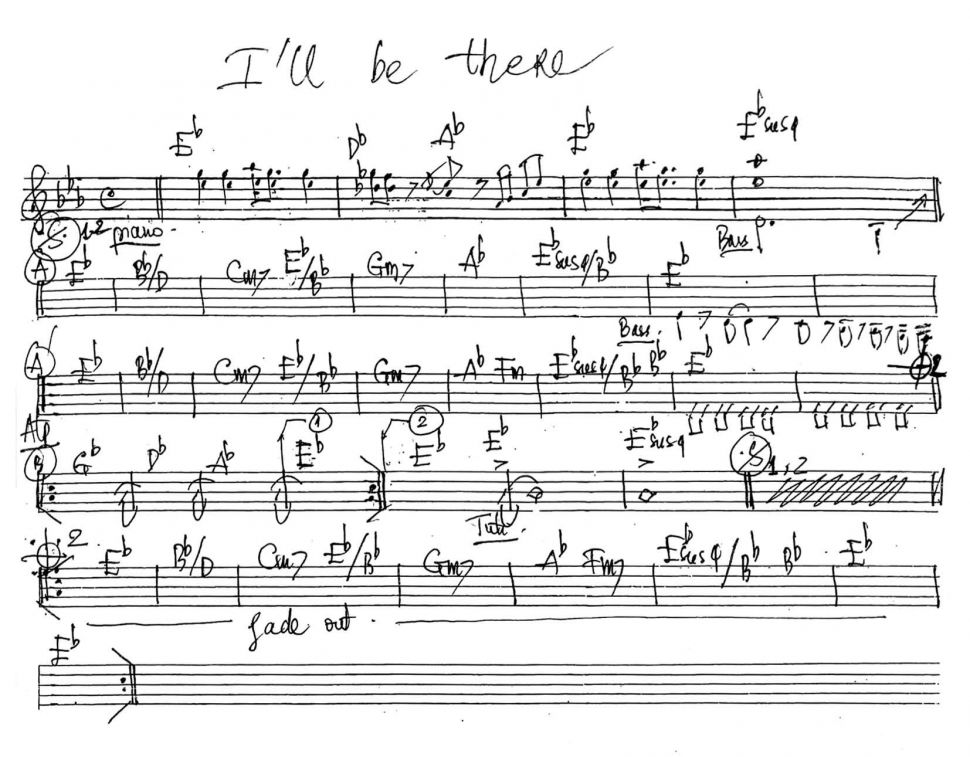 I'll be there
E♭ D♭ A♭ E♭ E♭sus4
1-2 piano. Bass
A E♭ B♭/D Cm7 E♭/B♭ Gm7 A♭ E♭sus4/B♭ E♭
Bass.
A' E♭ B♭/D Cm7 E♭/B♭ Gm7 A♭ Fm E♭sus4/B♭ B♭ E♭ 2
1 2
B G♭ D♭ A♭ E♭ E♭ E♭ E♭sus4 1,2
2 E♭ B♭/D Cm7 E♭/B♭ Gm7 A♭ Fm7 E♭sus4/B♭ B♭ E♭
fade out.
E♭